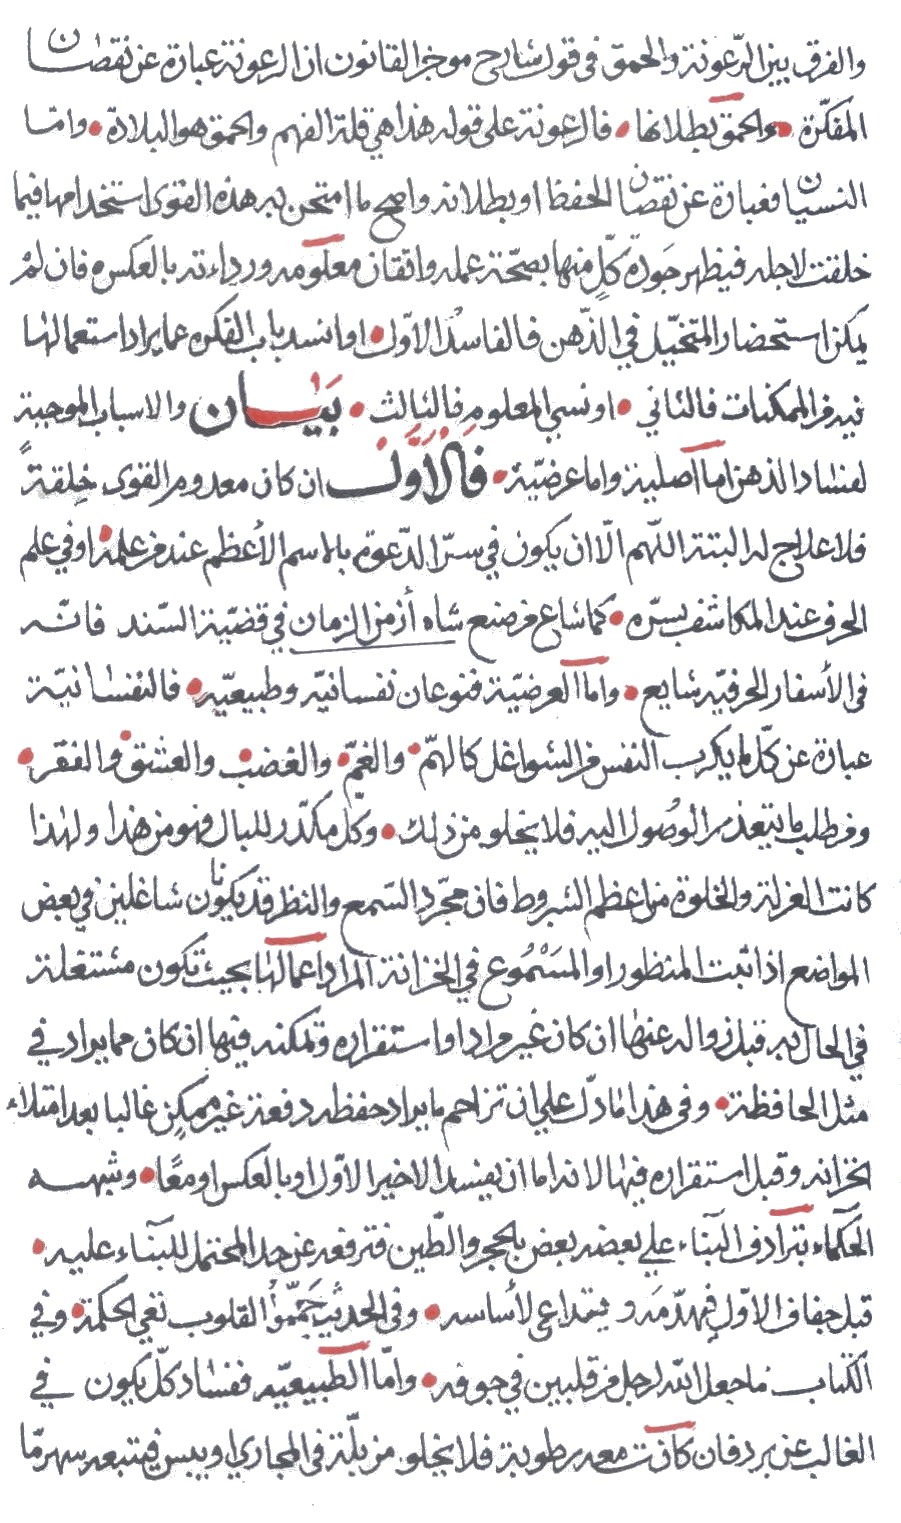 والفرق بين الرّعونة والحمق في قول شارح موجز القانون ان الرعونة عبارة عن نقصان
المفكّرة والحمق بطلانها فالرعونة على قوله هذا هي قلة الفهم والحمق هو البلادة وامّا
النسيان فعبارة عن نقصان الحفظ او بطلانه واصح ما امتحن به هذه القوى استخدامها فيما
خلقت لاجله فيظهر جَودة كلٍّ منها بصحّة عمله واتقان معلومه ورداءته بالعكس فان لمْ
يمكن استحضار المتخيّل في الذّهن فالفاسدُ الاوّل او انسد باب الفكره عما يراد استعمالها
فيه من الممكنات فالثاني او نسي المعلوم فالثالث بَيَان والاسباب الموجبة
لفساد الذهن اما اصلية واما عرضيّة فالاَوَّل ان كان معدوم القوى خِلقةً
فلا علاج له البتة اللّهم الّا ان يكون في سرّ الدّعوة بالاسم الأعظم عند من علمه او في علم
الحرف عند المكاشف بسرّه كما شاع من صنع شاه أزمن الزمان في قضيّة السّند فانّه
في الأسفار الحرفيّه شايع واما العرضيّة فنوعان نفسانيّه وطبيعيّه فالنفسانيّة
عبارة عن كلّ ما يكرب النفس من الشواغل كالهمّ والغمّ والغضب والعشق والفقر
ومن طلب ما يتعذر الوصُول اليه فلا يخلو من ذلك وكلّ مكدّر للبال فهو من هذا ولهذا
كانت العزلة والخلوة من اعظم الشروط فان مجّرد السّمع والنظر قد يكونان شاغلين في بعض
المواضع اذا ثبت المنظور او المَسْمُوع في الخزانة المراد اعمالها بحيث تكون مشتغلة
في الحال به قبل زواله عنها ان كان غير مراد او استقراره وتمكنه فيها ان كان مما يراد في
مثل الحافظة وفي هذا ما دلّ على ان تزاحم ما يراد حفظه دفعة غير ممكنٍ غالبا بعد امتلاء
الخزانه وقبل استقراره فيها لانه اما ان يفسد الاخير الاوّل او بالعكس او معًا وشبهه
الحكماء بترادف البناء على بعضه بعض بالحجر والطّين فترفعه عن حد المحتمل للبناء عليه
قبل جفاف الاوّل فيهدّمه ويتداعى لأساسه وفي الحديث جَمِّموُا القلوب تعي الحكمة وفي
الكتاب ما جعل اللّه لرجل من قلبين في جوفه وامّا الطّبيعيّه ففساد كلّ يكون في
الغالب عن برد فان كانت معه رطوبة فلا يخلو من بلّة في المجاري او يبس فيتبعه سهر مّا